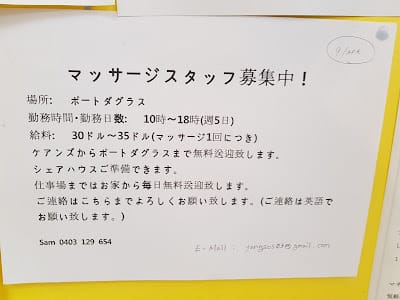 マッサージスタッフ募集中！
場所: ポートダグラス
勤務時間・勤務日数: 10時〜18時(週5日)
給料: 30ドル〜35ドル(マッサージ1回につき)
ケアンズからポートダグラスまで無料送迎致します。
シェアハウスご準備できます。
仕事場まではお家から毎日無料送迎致します。
ご連絡はこちらまでよろしくお願い致します。(ご連絡は英語で
お願い致します。)
Sam 0403 129 654
E-Mail :